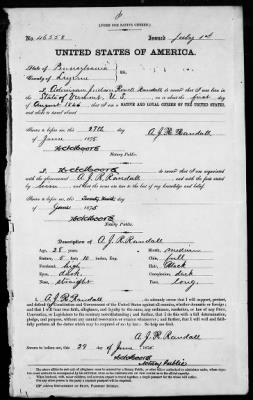 [FOR NATIVE CITIZEN.]
No. 46558 Issued July 1st
UNITED STATES OF AMERICA.
State of Pennsylvania
County of Luzerne ss.
I, Adoniram Judson Rowell Randall do swear that I was born in the
State of Vermont, U.S., on or about the first day
of August 1846, that I am a NATIVE AND LOYAL CITIZEN OF THE UNITED STATES,
and about to travel abroad
Sworn to before me, this 29th day A. J. R. Randall
of June 1875
Notary Public.
I, do swear that I am acquainted
with the above-named A. J. R. Randall and with the facts stated by
him and that the same are true to the best of my knowledge and belief.
Sworn to before me, this day
of June 1875
Notary Public.
Description of A. J. R. Randall
Age, 28 years. Mouth, medium
Stature, 5 feet 10 inches, Eng. Chin, full
Forehead, high Hair, Black
Eyes, dark Complexion, dark
Nose, straight Face, long
I, A. J. R. Randall do solemnly swear that I will support, protect, and
defend the Constitution and Government of the United States against all enemies, whether domestic or foreign;
and that I will bear true faith, allegiance, and loyalty to the same, any ordinance, resolution, or law of any State,
Convention, or Legislature to the contrary notwithstanding; and further, that I do this with a full determination,
pledge, and purpose, without any mental reservation or evasion whatsoever; and further, that I will well and faithfully
perform all the duties which may be required of me by law: So help me God.
A. J. R. Randall
Sworn to before me, this 29 day of June 1875
Notary Public